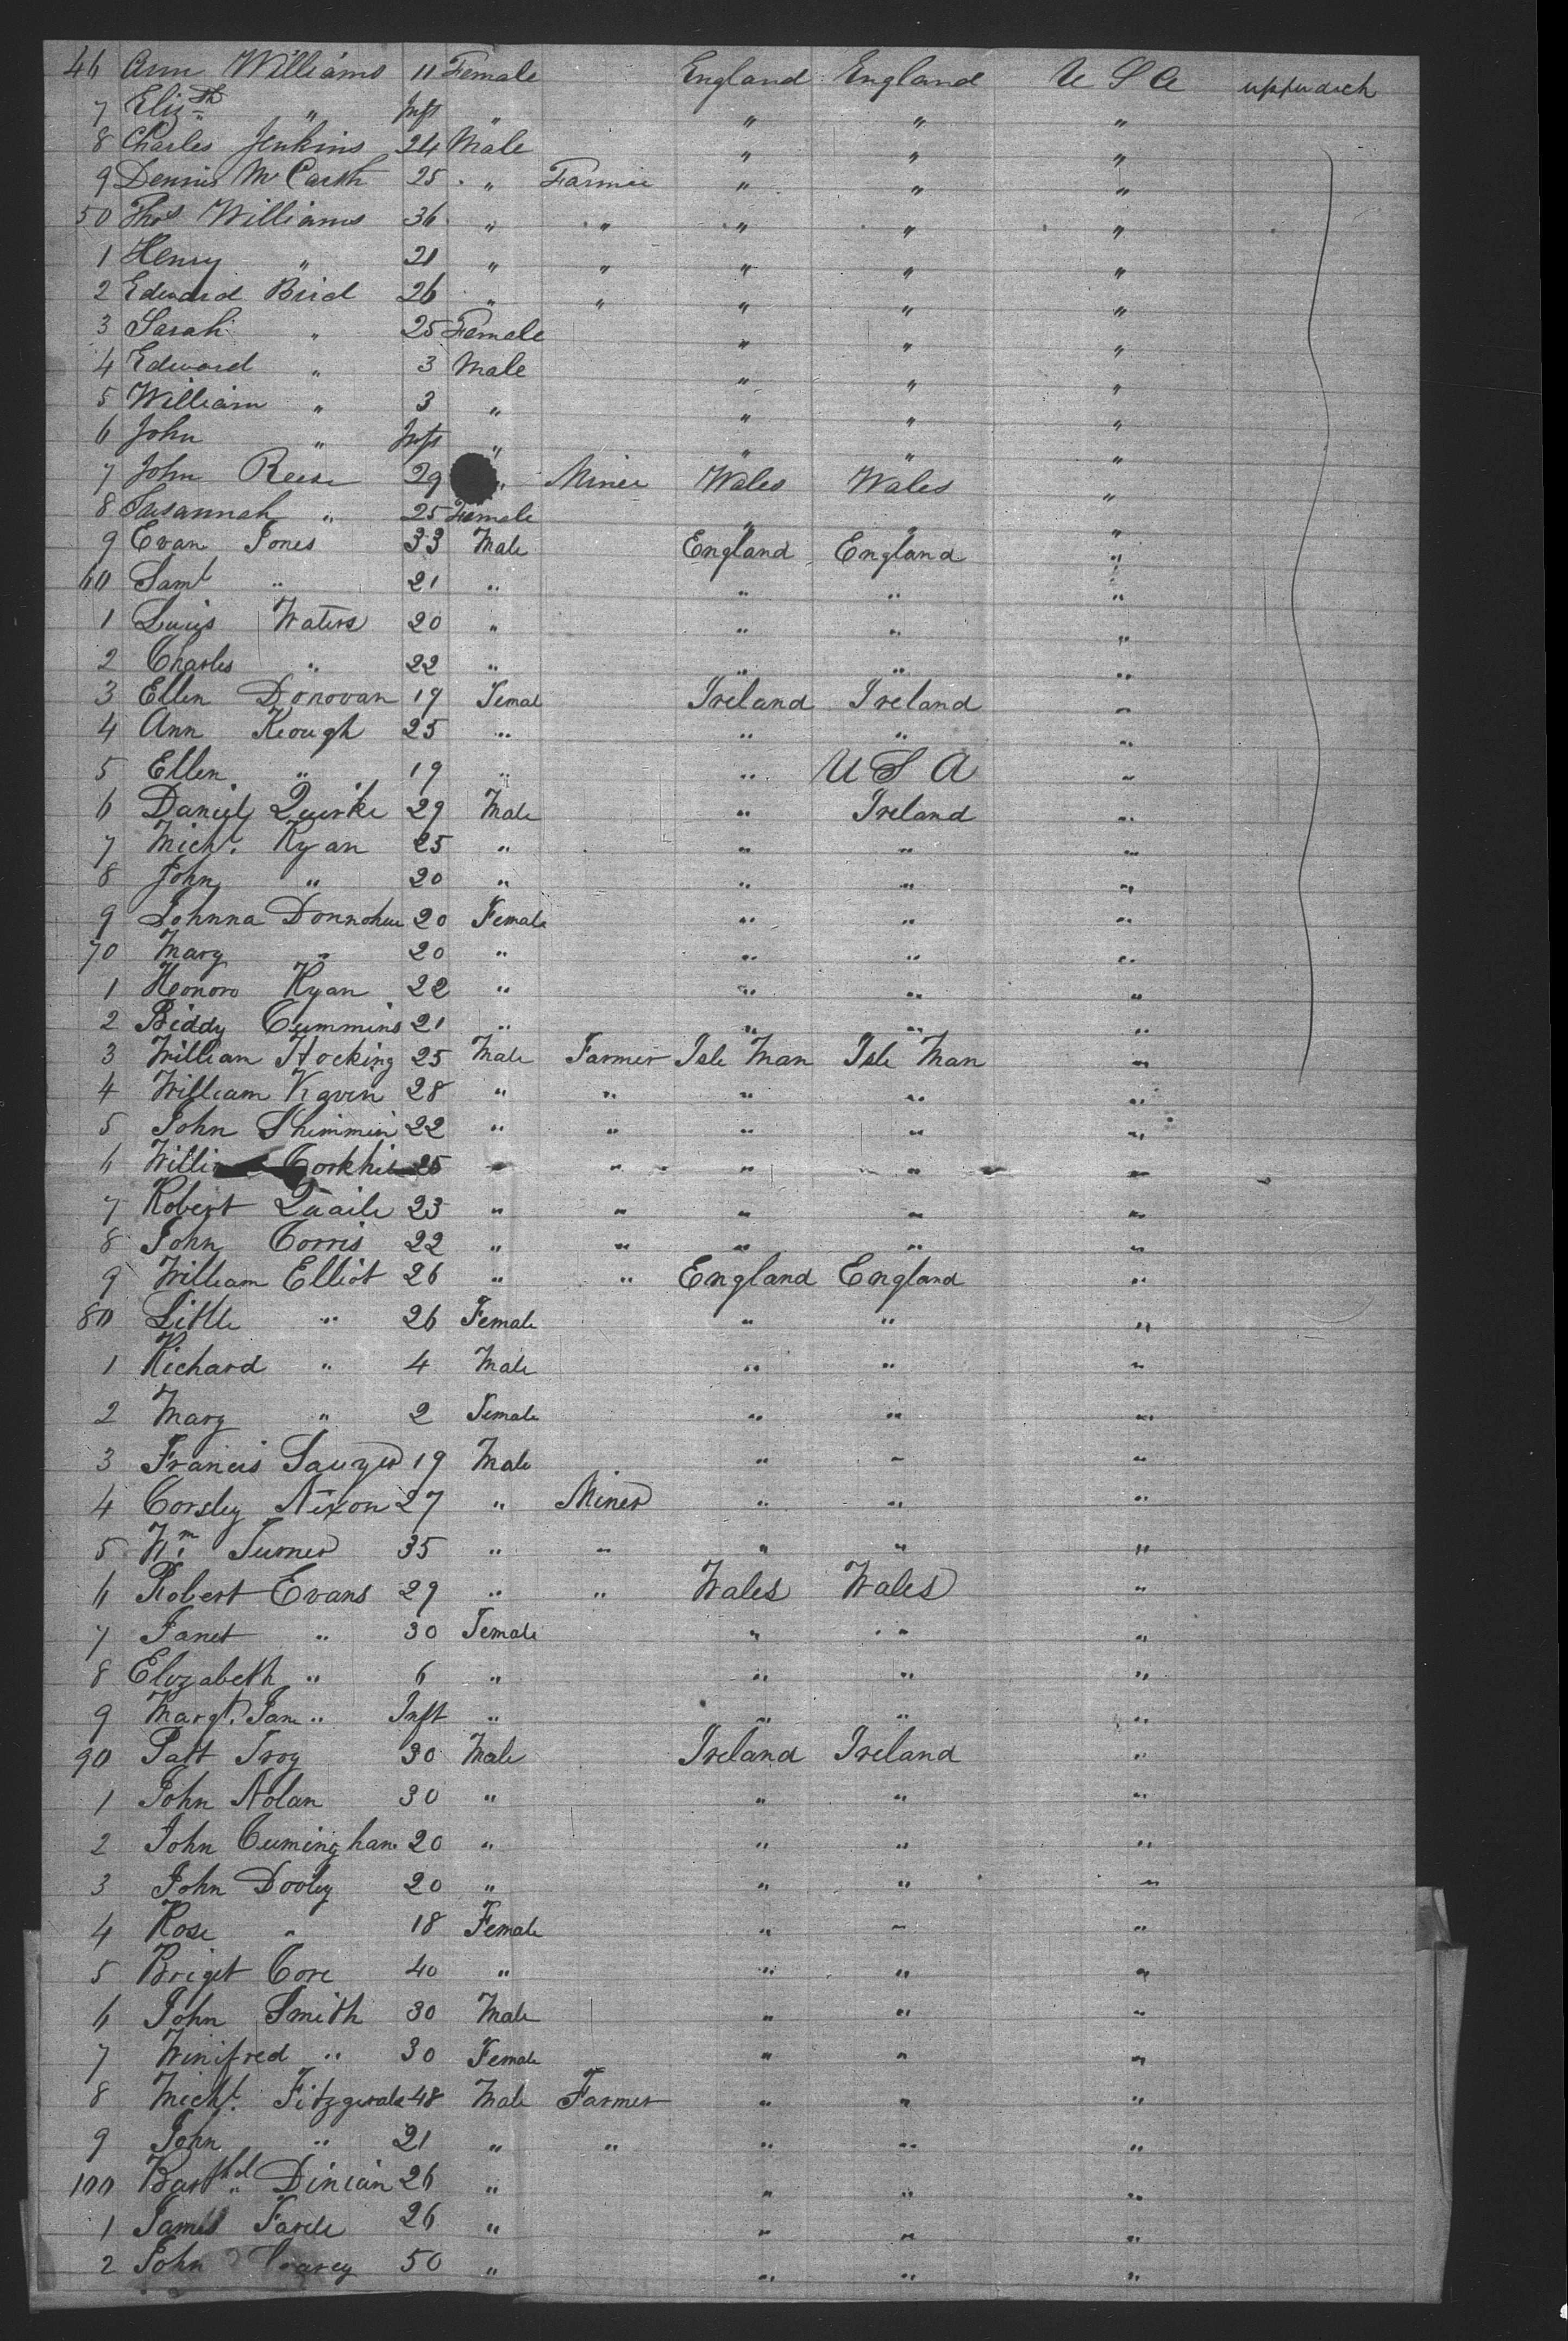 46 Ann Williams 11 Female England England U S A upper deck
7 Eliz.th " Inft " " " "
8 Charles Jenkins 24 Male " " "
9 Dennis McCarth 25 " Farmer " " "
50 Thos Williams 36 " " " " "
1 Henry " 21 " " " " "
2 Edward Brid 26 " " " " "
3 Sarah " 25 Female " " "
4 Edward " 3 Male " " "
5 William " 3 " " " "
6 John " Inft " " " "
7 John Reese 29 " Miner Wales Wales "
8 Susannah " 25 Female " " "
9 Evan Jones 33 Male England England "
60 Saml " 21 " " " "
1 Luis Waters 20 " " " "
2 Charles " 22 " " " "
3 Ellen Donovan 19 Femal Ireland Ireland "
4 Ann Keough 25 " " " "
5 Ellen " 19 " " U S A "
6 Daniel Quirke 29 Male " Ireland "
7 Michl. Ryan 25 " " " "
8 John " 20 " " " "
9 Johnna Donnohue 20 Female " " "
70 Mary " 20 " " " "
1 Honoro Ryan 22 " " " "
2 Biddy Cummins 21 " " " "
3 William Hocking 25 Male Farmer Isle Man Isle Man "
4 William Kaven 28 " " " " "
5 John Shimmin 22 " " " " "
6 Corkhill 25 " " " " "
7 Robert Quaile 23 " " " " "
8 John Corris 22 " " " " "
9 William Elliot 26 " " England England "
80 " 26 Female " " "
1 Richard " 4 Male " " "
2 Mary " 2 Female " " "
3 Francis Sawyer 19 Male " " "
4 Corsley Nixon 27 " Miner " " "
5 Wm. Turner 35 " " " " "
6 Robert Evans 29 " " Wales Wales "
7 Janet " 30 Female " " "
8 Elizabeth " 6 " " " "
9 Margt. Jane " Inft " " " "
90 Patt Troy 30 Male Ireland Ireland "
1 John Nolan 30 " " " "
2 John Cumingham 20 " " " "
3 John Dooley 20 " " " "
4 Rose " 18 Female " " "
5 Briget Core 40 " " " "
6 John Smith 30 Male " " "
7 Winifred " 30 Female " " "
8 Michl. Fitzgerald 48 Male Farmer " " "
9 John " 21 " " " " "
100 Barthol Dinian 26 " " " "
1 James 26 " " " "
2 John 50 " " " "